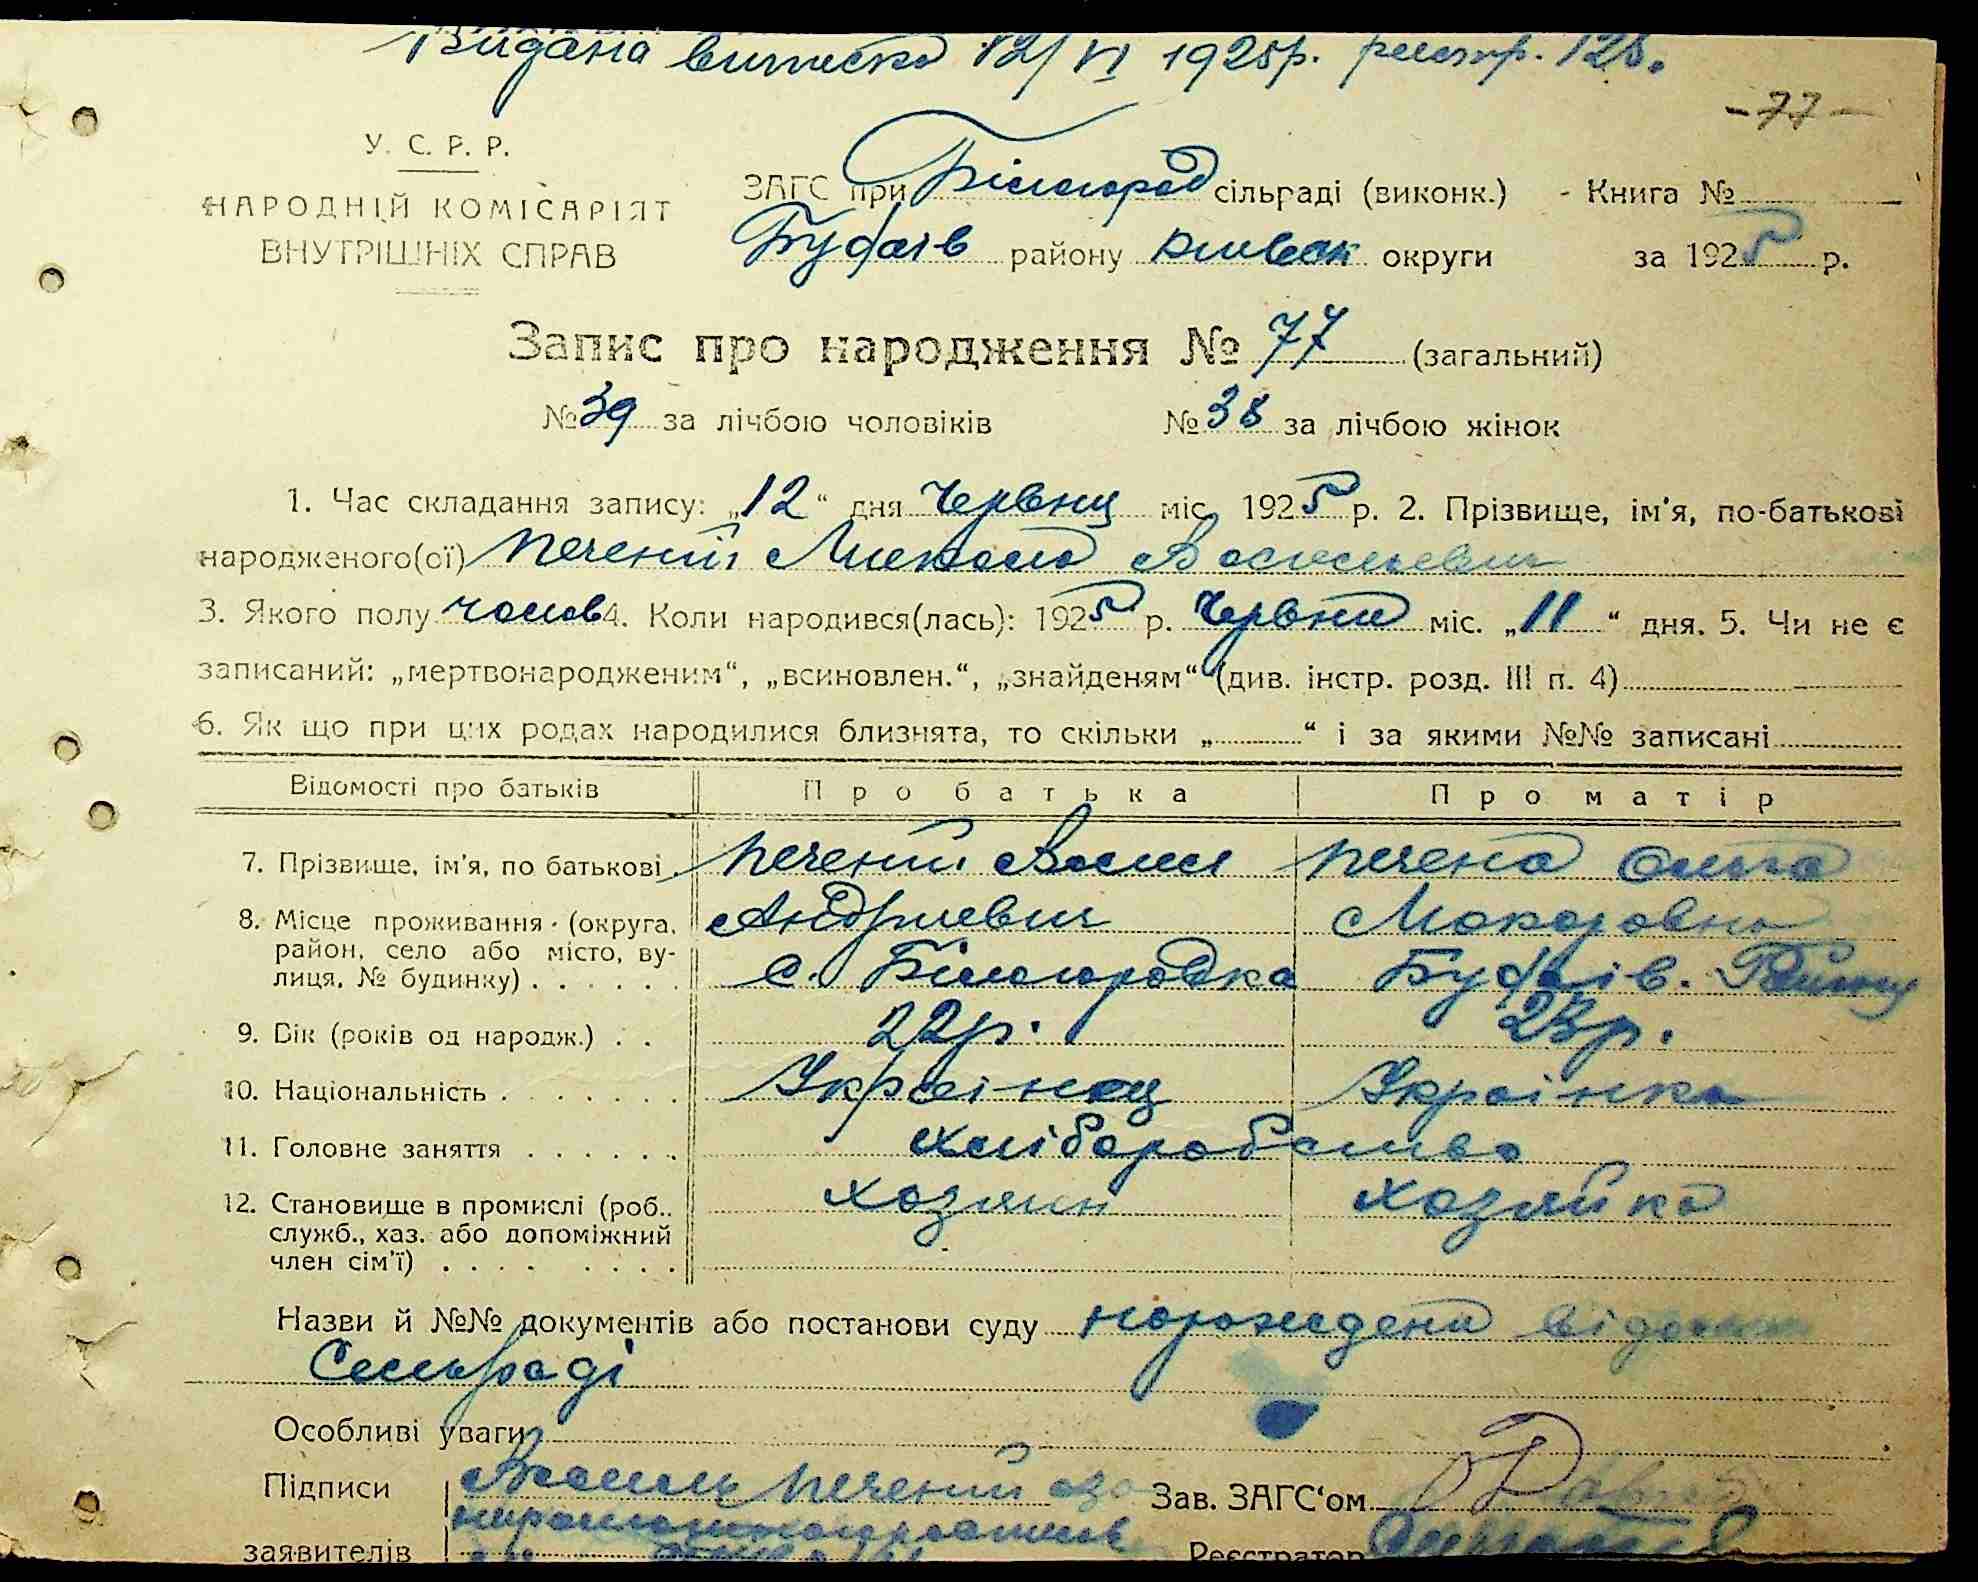 Видана виписка 12/VI 1925р. реєстр. 128.
-77-
У. С. Р. Р.
НАРОДНІЙ КОМІСАРІЯТ
ВНУТРІШНІХ СПРАВ
ЗАГС при Білогород сільраді (виконк.) - Книга №
Будаїв району Київськ округи за 1925 р.
Запис про народження № 77 (загальний)
№ 39 за лічбою чоловіків № 38 за лічбою жінок
1. Час складання запису: „12“ дня Червня міс. 1925 р. 2. Прізвище, ім'я, по-батькові
народженого(ої) Печений Микола Васильевич
3. Якого полу чолов 4. Коли народився(лась): 1925 р. Червня міс. „11“ дня. 5. Чи не є
записаний: „мертвонародженим“, „всиновлен.“, „знайденям“ (див. інстр. розд. III п. 4)
6. Як що при цих родах народилися близнята, то скільки „ “ і за якими №№ записані
Відомості про батьків Про батька Про матір
7. Прізвище, ім'я, по батькові. Печений Васил Печена Ольга
Андриевич Макаровна
8. Місце проживання (округа,
район, село або місто, ву-
лиця, № будинку) . . . . . . с. Білогородка Будаїв. Району
9. Вік (років од народж.) . . 22р. 23р.
10. Національність . . . . . . . Українец Українка
11. Головне заняття . . . . . . Хліборобство
12. Становище в промислі (роб.. хозяин хозяйка
служб., хаз. або допоміжний
член сім'ї) . . . . . . . .
Назви й №№ документів або постанови суду
Сельраді
Особливі уваги
Підписи Василь Печений
Зав. ЗАГС‘ом
заявителів
Реєстратор